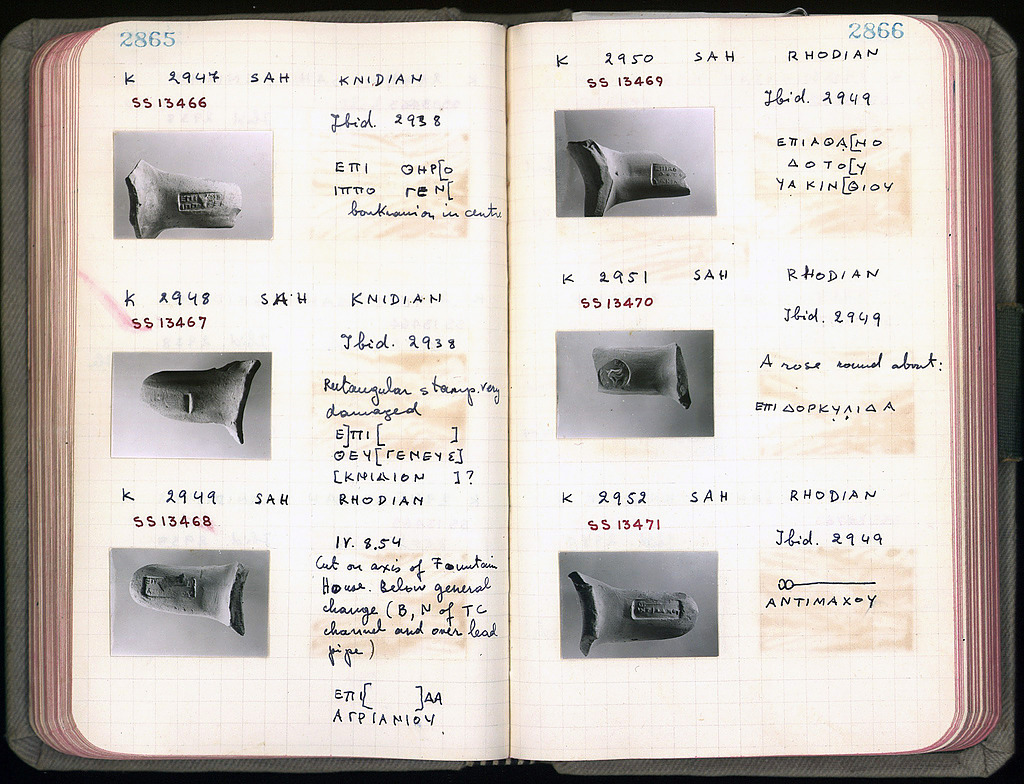 2865
K 2947 SAH KNIDIAN
SS 13466
Ibid. 2938
ΕΠΙ ΘΗΡ[Ο
ΙΠΠΟ ΓΕΝ[
boukranion in centre
K 2948 SAH KNIDIAN
SS 13467
Ibid. 2938
Rectangular stamp. very
damaged
Ε]ΠΙ[ ]
ΘΕΥ[ΓΕΝΕΥΣ]
[ΚΝΙΔΙΟΝ ]?
K 2949 SAH RHODIAN
SS 13468
IV. 8.54
Cut on axis of Fountain
House. Below general
change (B, N of TC
channel and over lead
pipe)
ΕΠΙ[ ]ΔΑ
ΑΓΡΙΑΝΙΟΥ
2866
K 2950 SAH RHODIAN
SS 13469
Ibid. 2949
ΕΠΙΑΘΑ[ΝΟ
ΔΟΤΟ[Υ
ΥΑΚΙΝ[ΘΙΟΥ
K 2951 SAH RHODIAN
SS 13470
Ibid. 2949
A rose round about:
ΕΠΙ ΔΟΡΚΥΛΙΔΑ
K 2952 SAH RHODIAN
SS 13471
Ibid. 2949
ΑΝΤΙΜΑΧΟΥ